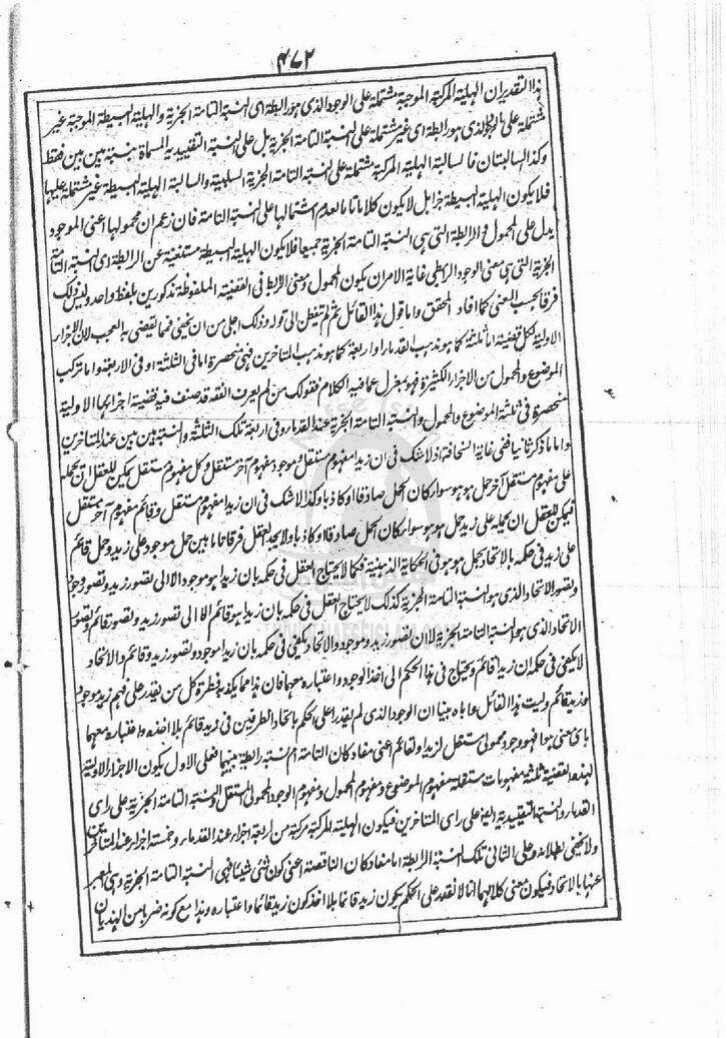 ٤٧٢
هذا التقدير ان الهلية المركبة الموجبة مشتملة على الوجود الذى هو رابطة اى النسبة التامة الجزية والهلية البسيطة الموجبة غير
مشتملة على الوجود الذى هو رابطة اى غير مشتملة على النسبة التامة الجزية بل على النسبة التقييدية المسماة بنسبة بين بين فقط
وكذا السالبتان فالسالبة الهلية المركبة مشتملة على النسبة التامة الجزية السلبية والسالبة الهلية البسيطة غير مشتملة عليها
فلا يكون الهلية البسيطة جزا بل لا يكون كلاما تاما لعدم اشتمالها على النسبة التامة فان زعم ان محمولها اعنى الموجود
يدل على المحمول فى الرابطة التى هى النسبة التامة الجزية جميعا فلا يكون الهلية البسيطة مستغنية عن الرابطة اى النسبة التامة
الجزية التى هى معنى الوجود الرابطى غاية الامر ان يكون المحمول ومعنى الرابط فى القضية الملفوظة مذكورين بلفظ واحد وليس ذلك
فرقا بحسب المعنى كما افاد المحقق واما قول هذا القائل ثم لم يتفطن الى قوله وذلك اجلى من ان يخفى فمما يقضى به العجب لان الاجزاء
الاولية لكل قضية اما ثلثة كما هو مذهب القدماء او اربعة كما هو مذهب المتاخرين فهى منحصرة اما فى الثلثة او فى الاربعة واما تركب
الموضوع والمحمول من الاجزاء الكثيرة فهو بمعزل عما فيه الكلام فقولك من لم يعرف الفقه قد صنف فيه قضية اجزائها الاولية
منحصرة فى ثلثة الموضوع والمحمول والنسبة التامة الجزية عند القدماء وفى اربعة تلك الثلثة والنسبة بين بين عند المتاخرين
واما ما ذكر ثانيا ففى غاية السخافة اذ لا شك فى ان زيدا مفهوم مستقل وموجود مفهوم آخر مستقل وكل مفهوم مستقل يمكن للعقل ان يحمله
على مفهوم مستقل آخر حمل هو هو سواء كان الحمل صادقا او كاذبا وكذا لا شك فى ان زيدا مفهوم مستقل وقائم مفهوم آخر مستقل
فيمكن للعقل ان يحمله على زيد حمل هو هو سواء كان الحمل صادقا او كاذبا ولا يجد العقل فرقا ما بين حمل موجود على زيد وحمل قائم
على زيد فى حكمه بالاتحاد بحمل هو هو فى الحكاية الذهنية فكما لا يحتاج العقل فى حكمه بان زيدا هو موجود الا الى تصور زيد وتصور موجود
وتصور الاتحاد الذى هو النسبة التامة الجزية كذلك لا يحتاج العقل فى حكمه بان زيدا هو قائم الا الى تصور زيد وتصور قائم وتصور
الاتحاد الذى هو النسبة التامة الجزية لا ان تصور زيد وموجود والاتحاد يكفى فى حكمه بان زيدا موجود وتصور زيد وقائم والاتحاد
لا يكفى فى حكمه ان زيدا قائم ويحتاج فى هذا الحكم الى اخذ الوجود واعتباره معها فان هذا مما يكذبه فطرة كل من يقدر على فهم زيد موجود
وزيد قائم وليت هذا القائل عما باه بينا ان الوجود الذى لم يقدر على الحكم باتحاد الطرفين فى زيد قائم بلا اخذه واعتباره معهما
باى معنى هو أفهو وجود محمولى مستقل لزيد او لقائم اعنى مفاد كان التامة ام نسبة رابطة بينهما فعلى الاول يكون الاجزاء الاولية
لهذه القضية ثلثة مفهومات مستقلة مفهوم الموضوع ومفهوم المحمول ومفهوم الوجود المحمولى المستقل والنسبة التامة الجزية على راى
القدماء والنسبة التقييدية ايضا على راى المتاخرين فيكون الهلية المركبة مركبة من اربعة اجزاء عند القدماء وخمسة اجزاء عند المتاخرين
ولا يخفى بطلانه وعلى الثانى تلك النسبة الرابطة اما مفاد كان الناقصة اعنى كون شئ شيئا فهى النسبة التامة الجزية وهى المعبر
عنها بالاتحاد فيكون معنى كلامه انا لا نقدر على الحكم بكون زيد قائما بلا اخذ كون زيد قائما واعتباره وهذا مع كونه ضربا من الهذيان
WWW.NAFSEISLAM.COM